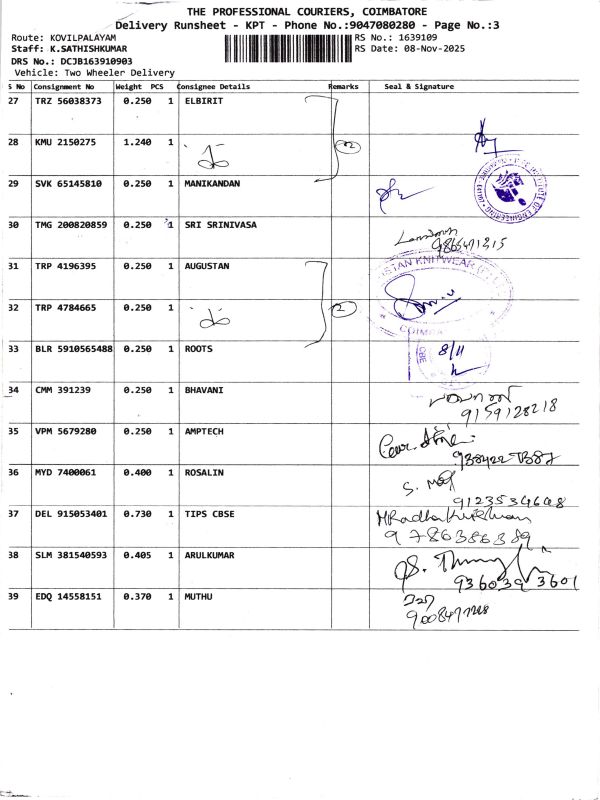 THE PROFESSIONAL COURIERS, COIMBATORE
Delivery Runsheet - KPT - Phone No.:9047080280 - Page No.:3
Route: KOVILPALAYAM
RS No.: 1639109
Staff: K.SATHISHKUMAR
RS Date: 08-Nov-2025
DRS No.: DCJB163910903
Vehicle: Two Wheeler Delivery
S No Consignment No Weight PCS Consignee Details Remarks Seal & Signature
27 TRZ 56038373 0.250 1 ELBIRIT
28 KMU 2150275 1.240 1
29 SVK 65145810 0.250 1 MANIKANDAN
30 TMG 200820859 0.250 1 SRI SRINIVASA
31 TRP 4196395 0.250 1 AUGUSTAN
32 TRP 4784665 0.250 1 2
33 BLR 5910565488 0.250 1 ROOTS 8/11
34 CMM 391239 0.250 1 BHAVANI
9159128218
35 VPM 5679280 0.250 1 AMPTECH
36 MYD 7400061 0.400 1 ROSALIN
9123534648
37 DEL 915053401 0.730 1 TIPS CBSE
9786386389
38 SLM 381540593 0.405 1 ARULKUMAR
9360393601
39 EDQ 14558151 0.370 1 MUTHU